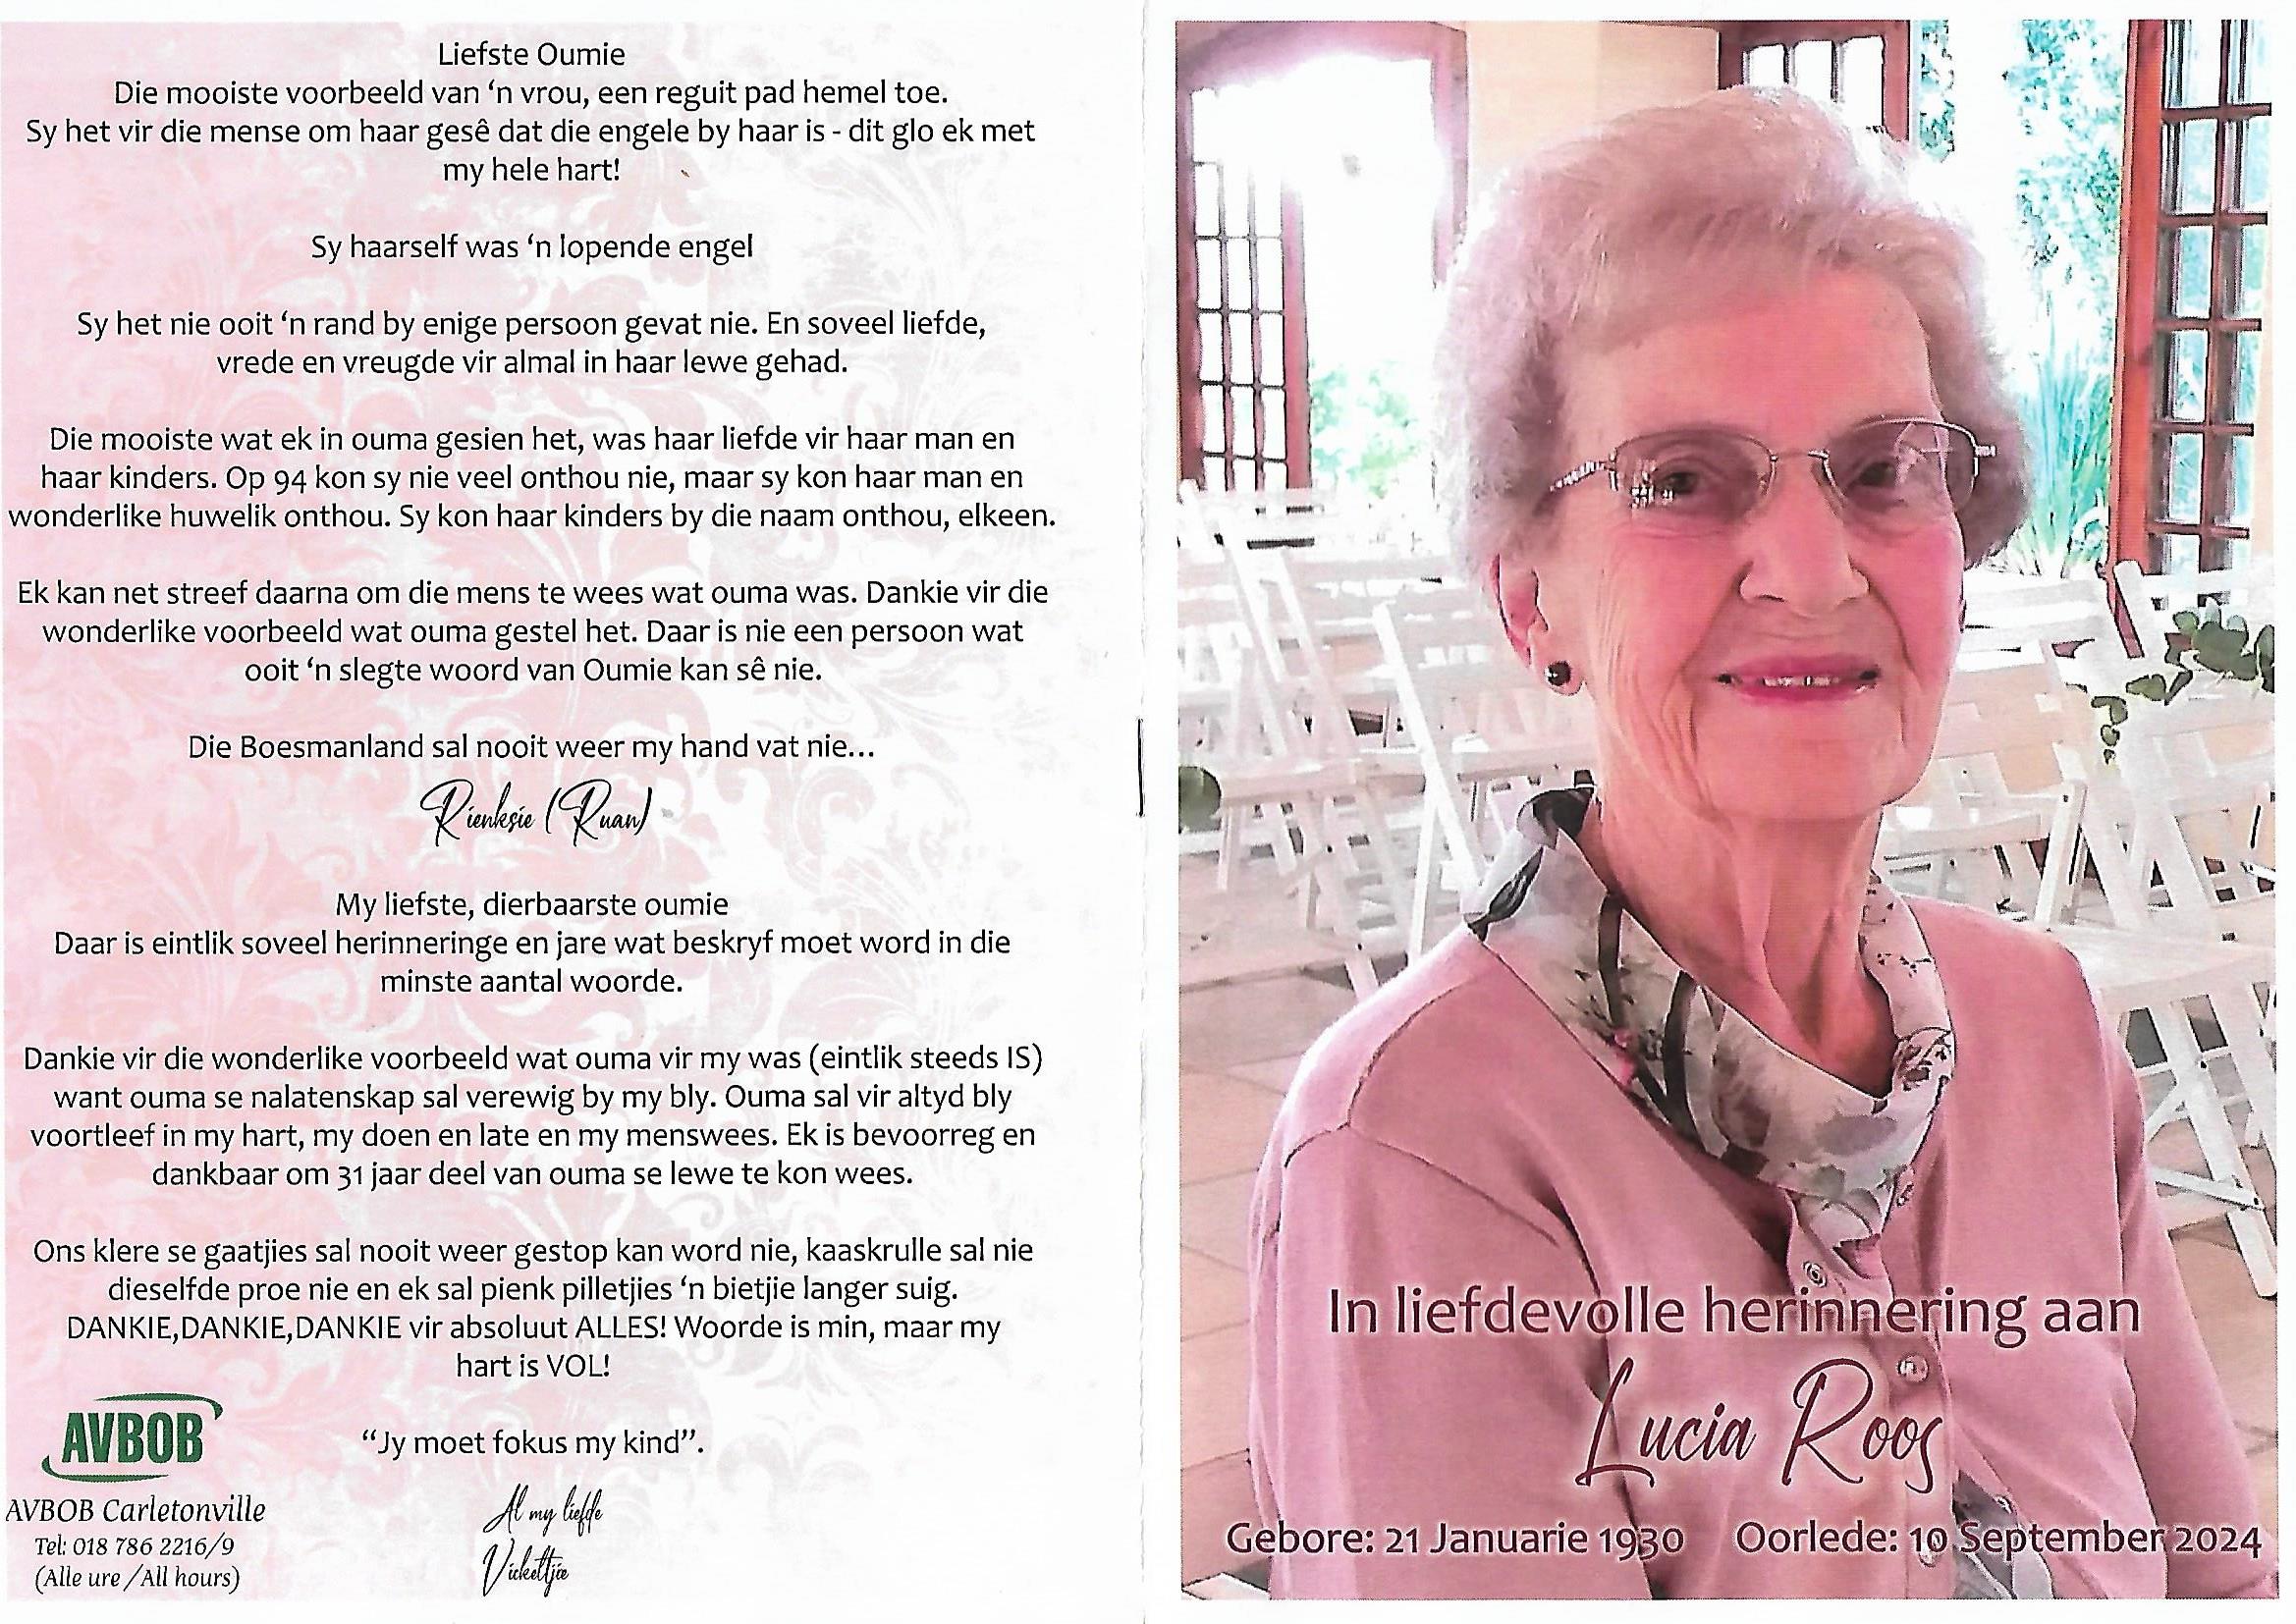 Liefste Oumie
Die mooiste voorbeeld van ‘n vrou, een reguit pad hemel toe.
Sy het vir die mense om haar gesê dat die engele by haar is - dit glo ek met
my hele hart!
Sy haarself was ‘n lopende engel
Sy het nie ooit ‘n rand by enige persoon gevat nie. En soveel liefde,
vrede en vreugde vir almal in haar lewe gehad.
Die mooiste wat ek in ouma gesien het, was haar liefde vir haar man en
haar kinders. Op 94 kon sy nie veel onthou nie, maar sy kon haar man en
wonderlike huwelik onthou. Sy kon haar kinders by die naam onthou, elkeen.
Ek kan net streef daarna om die mens te wees wat ouma was. Dankie vir die
wonderlike voorbeeld wat ouma gestel het. Daar is nie een persoon wat
ooit ‘n slegte woord van Oumie kan sê nie.
Die Boesmanland sal nooit weer my hand vat nie...
Rienksie (Ruan)
My liefste, dierbaarste oumie
Daar is eintlik soveel herinneringe en jare wat beskryf moet word in die
minste aantal woorde.
Dankie vir die wonderlike voorbeeld wat ouma vir my was (eintlik steeds IS)
want ouma se nalatenskap sal verewig by my bly. Ouma sal vir altyd bly
voortleef in my hart, my doen en late en my menswees. Ek is bevoorreg en
dankbaar om 31 jaar deel van ouma se lewe te kon wees.
Ons klere se gaatjies sal nooit weer gestop kan word nie, kaaskrulle sal nie
dieselfde proe nie en ek sal pienk pilletjies ‘n bietjie langer suig.
DANKIE,DANKIE,DANKIE vir absoluut ALLES! Woorde is min, maar my
hart is VOL!
“Jy moet fokus my kind”.
Al my liefde
Vickeltjie
AVBOB
AVBOB Carletonville
Tel: 018 786 2216/9
(Alle ure /All hours)
In liefdevolle herinnering aan
Lucia Roos
Gebore: 21 Januarie 1930 Oorlede: 10 September 2024